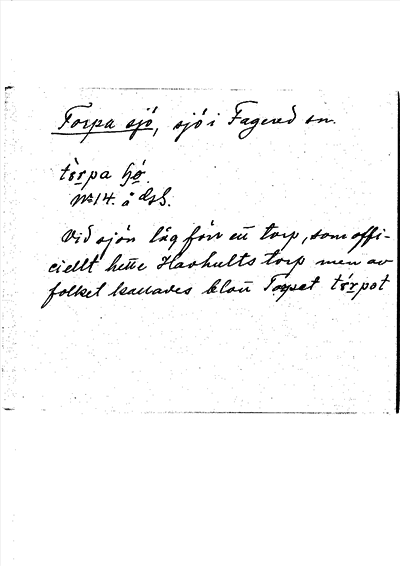 Torpa sjö, sjö i Fagered sn.
tòrpa
Nr 14. å dsk.
Vid sjön låg förr ett torp, som offi-
ciellt hette Havhults torp men av
folket kallades blott Torpet tòrpət